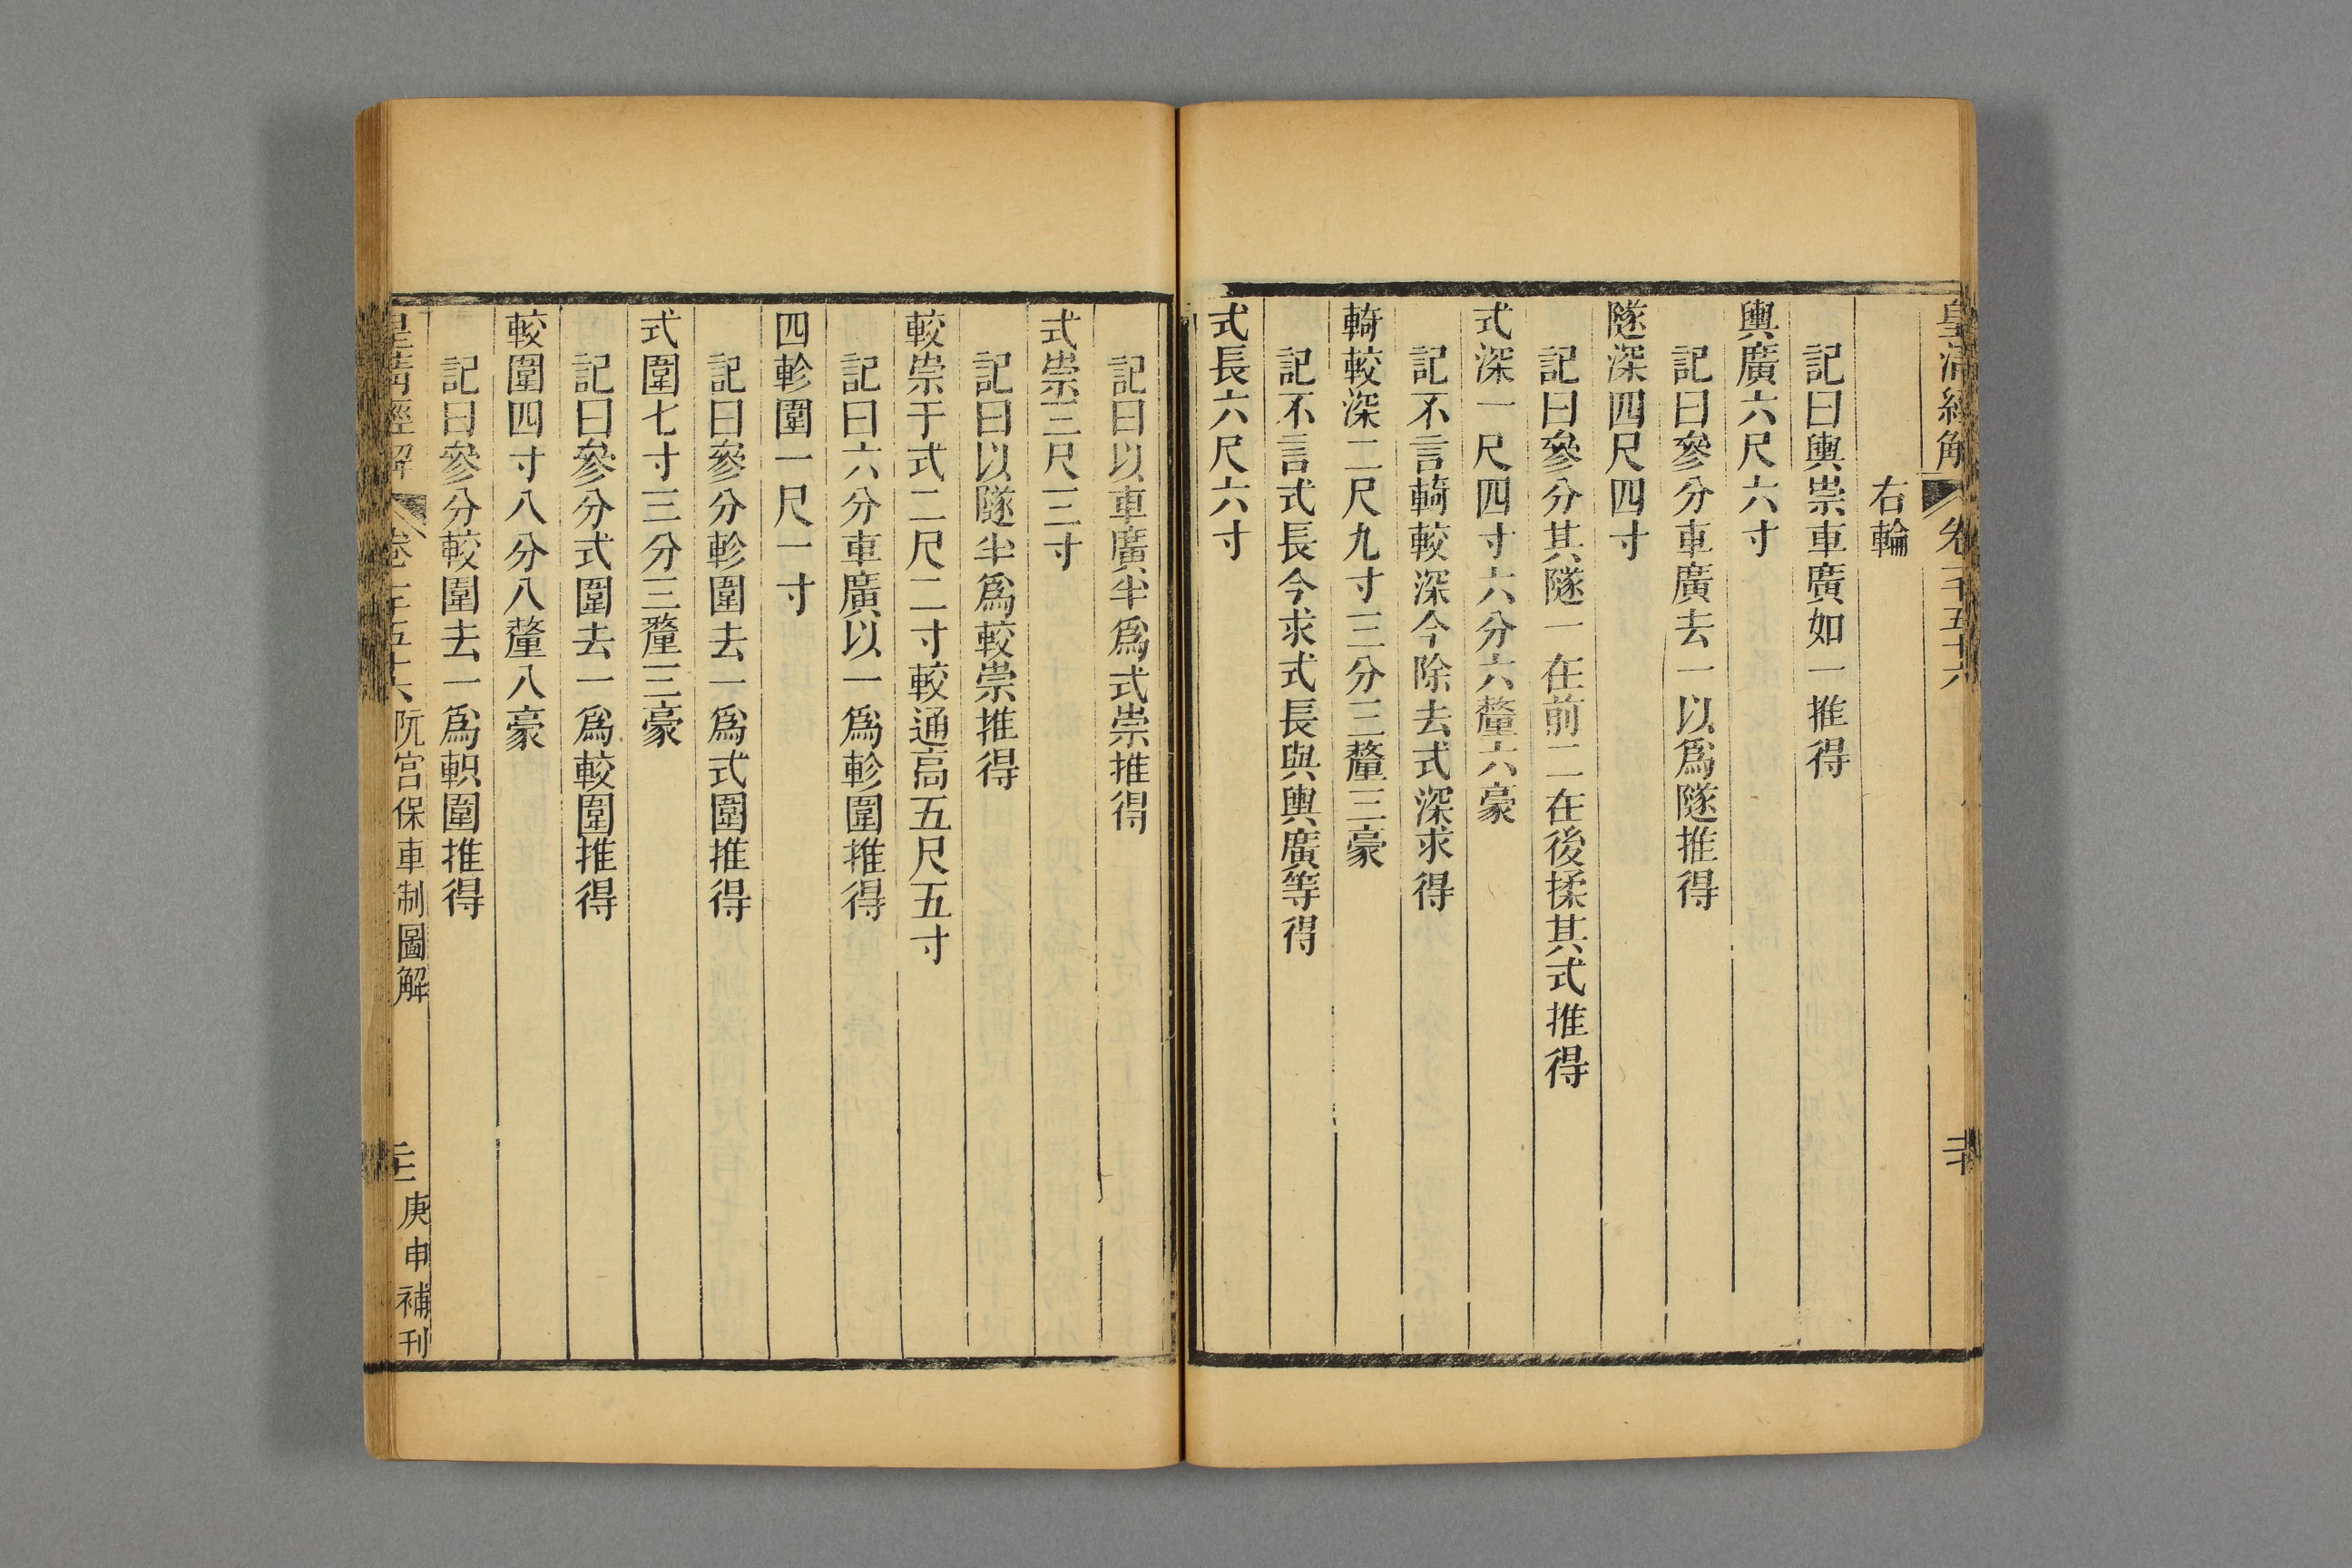 皇清經解 卷一千五十六 二十
右輪
記曰輿崇車廣如一推得
輿廣六尺六寸
記曰參分車廣去一以爲隧推得
隧深四尺四寸
記曰參分其隧一在前二在後揉其式推得
式深一尺四寸六分六釐六豪
記不言輢較深今除去式深求得
輢較深二尺九寸三分三釐三豪
記不言式長今求式長與輿廣等得
式長六尺六寸
記曰以車廣半爲式崇推得
式崇三尺三寸
記曰以隧半爲較崇推得
較崇于式二尺二寸較通高五尺五寸
記曰六分車廣以一爲軫圍推得
四軫圍一尺一寸
記曰參分軫圍去一爲式圍推得
式圍七寸三分三釐三豪
記曰參分式圍去一爲較圍推得
較圍四寸八分八釐八豪
記曰參分較圍去一爲軹圍推得
皇清經解 卷一千五十六 阮宮保車制圖解 二十一 庚申補刊